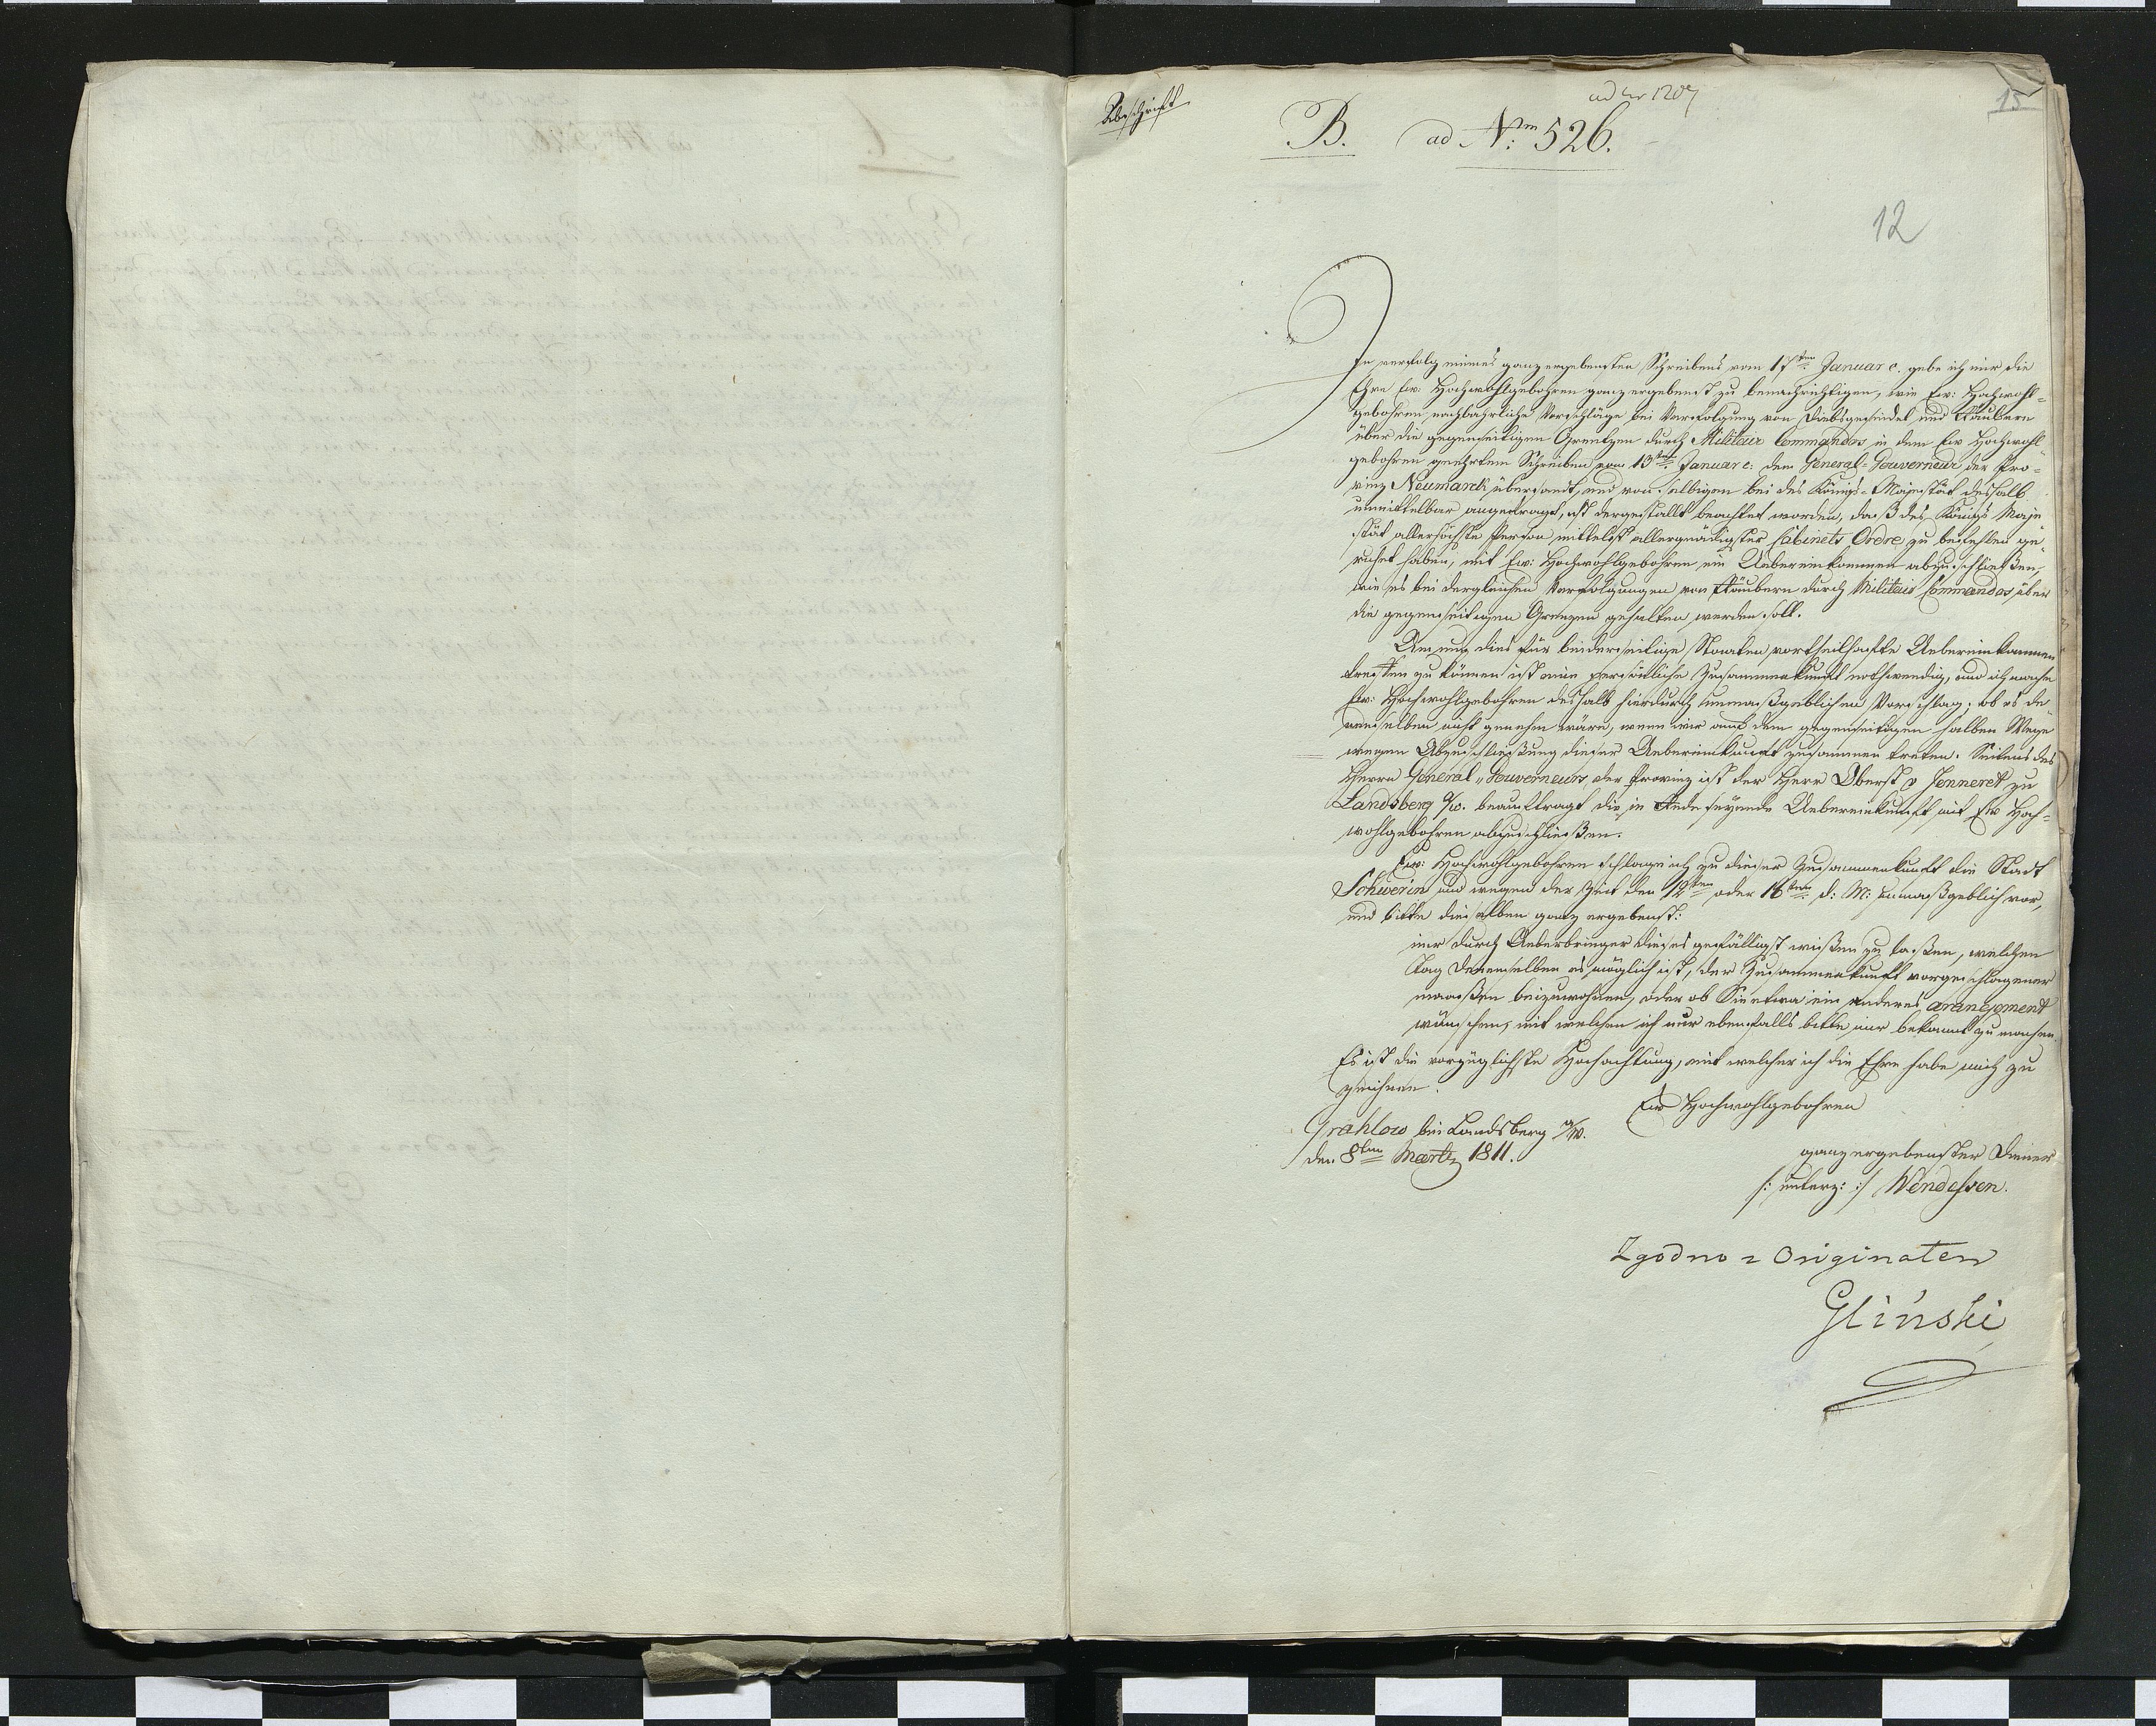 Abschrift
ad Nr 1207
15
B. ad Nrm 526.
12
In verfolg meines ganz ergebensten Schreibens vom 17ten Januar c. gebe ich mir die
Ehre Ew: Hochwohlgebohren ganz ergebenst zu benachrichtigen, wie Ew: Hochwohl-
gebohren nachbahrliche Vorschläge bei Verfolgung von Diebsgesindel und Räubern
über die gegenseitigen Grentzen durch Militair Commandos in dem Ew Hochwohl-
gebohren geehrtem Schreiben vom 13ten Januar c: dem General-Gouverneur der Pro-
vinz Neumark übersandt, und von selbigen bei des Königs-Majestät deshalb
unmittelbar angetragt, ist dergestallt beachtet worden, daß des Königs Maje
stät allerhöchste Person mittelst allergnädigster Cabinets Ordre zu befehlen ge-
ruhet haben, mit Ew: Hochwohlgebohren ein Uebereinkommen abzuschließen,
wie es bei dergleichen Verfolgungen von Räubern durch Militair Commandos über
die gegenseitigen Grenzen gehalten werden soll.
Um nun dies für beiderseitige Staaten vortheilhafte Uebereinkommen
treffen zu können ist eine persönliche Zusammenkunft nothwendig, und ich mache
Ew: Hochwohlgebohren deshalb hierdurch unmaßgeblichen Vorschlag; ob es de-
nenselben nicht genehm wäre, wenn wir auf dem gegenseitigen halben Wege
wegen Abschließung dieser Uebereinkunft zusammen treten. Seitens des
Herrn General-Gouverneurs der Provinz ist der Herr Oberst v Jenneret zu
Landsberg a/w. beauftragt die in Rede seyende Uebereinkunft mit Ew Hoch-
wohlgebohren abzuschließen.
Ew: Hochwohlgebohren schlage ich zu dieser Zusammenkunft die Stadt
Schwerin und wegen der Zeit den 12ten oder 16ten d: M: unmaßgeblich vor,
und bitte dieselben ganz ergebenst:
mir durch Ueberbringer dieses gefälligst wißen zu laßen, welchen
Tag Denenselben es möglich ist, der Zusammenkunft vorgeschlagener
maaßen beizuwohnen, oder ob Sie etwa ein anderes arangement
wünschen, mit welchen ich nur ebenfalls bitte mir bekannt zu machen.
Es ist die vorzüglichste Hochachtung, mit welcher ich die Ehre habe mich zu
zeichnen.
Ew Hochwohlgebohren
Grahlow bei Landsberg a/W.
den 8ten Maertz 1811.
ganz ergebenster Diener
/: unterz: :/ Wendessen.
Zgodno z Originałem
Gliński